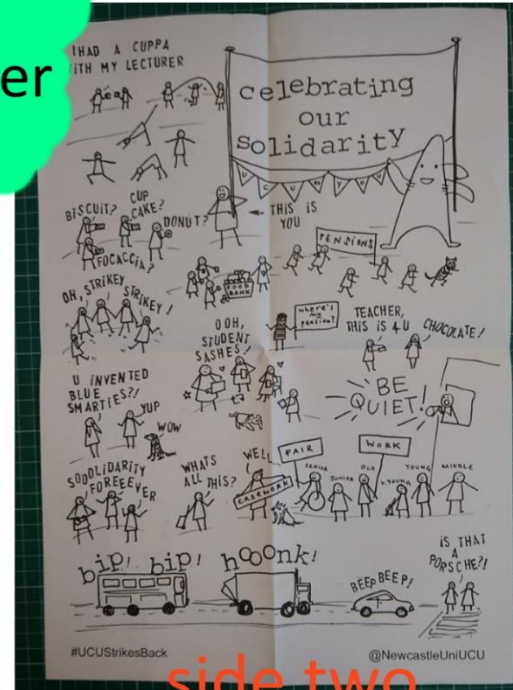 er
I HAD A CUPPA
WITH MY LECTURER
celebrating
our
solidarity
BISCUIT?
CUP
CAKE?
DONUT?
FOCACCIA?
THIS IS
YOU
PENSIONS
OH, STRIKEY
STRIKEY!
FOOD
BANK
WHERE'S
MY
PENSION?
TEACHER,
THIS IS 4 U
CHOCOLATE!
OOH,
STUDENT
SASHES!
U INVENTED
BLUE
SMARTIES?!
YUP
WOW
BE
QUIET!
SOOOLIDARITY
FOREEEVER
WHATS
ALL THIS?
WELL
CASEWORK
FAIR
WORK
SENIOR
JUNIOR
OLD
V.YOUNG
YOUNG
MIDDLE
bip! bip!
hooonk!
BEEP BEEP!
IS THAT
A
PORSCHE?!
#UCUStrikesBack
@NewcastleUniUCU
side two